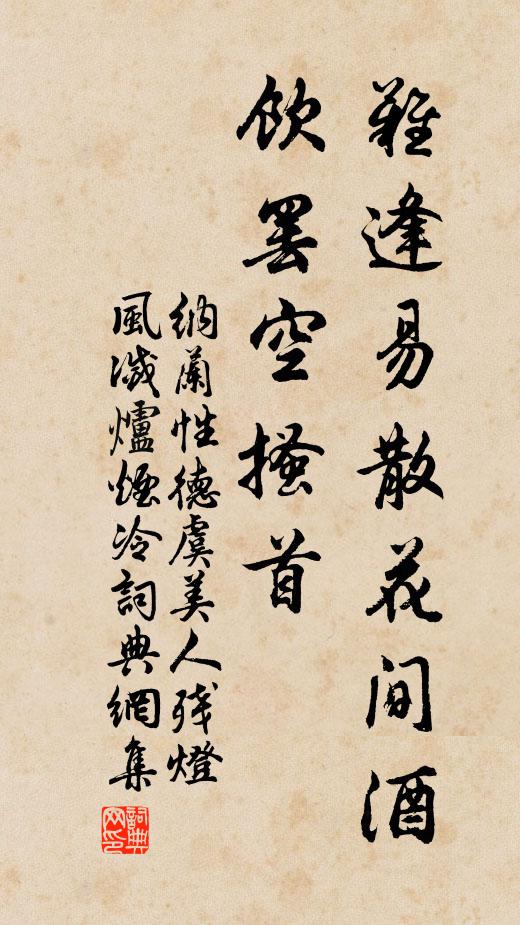 難逢易散花間酒
飲罷空搔首
納蘭性德虞美人殘燈
風滅爐煙冷詞典網集
詞典网印